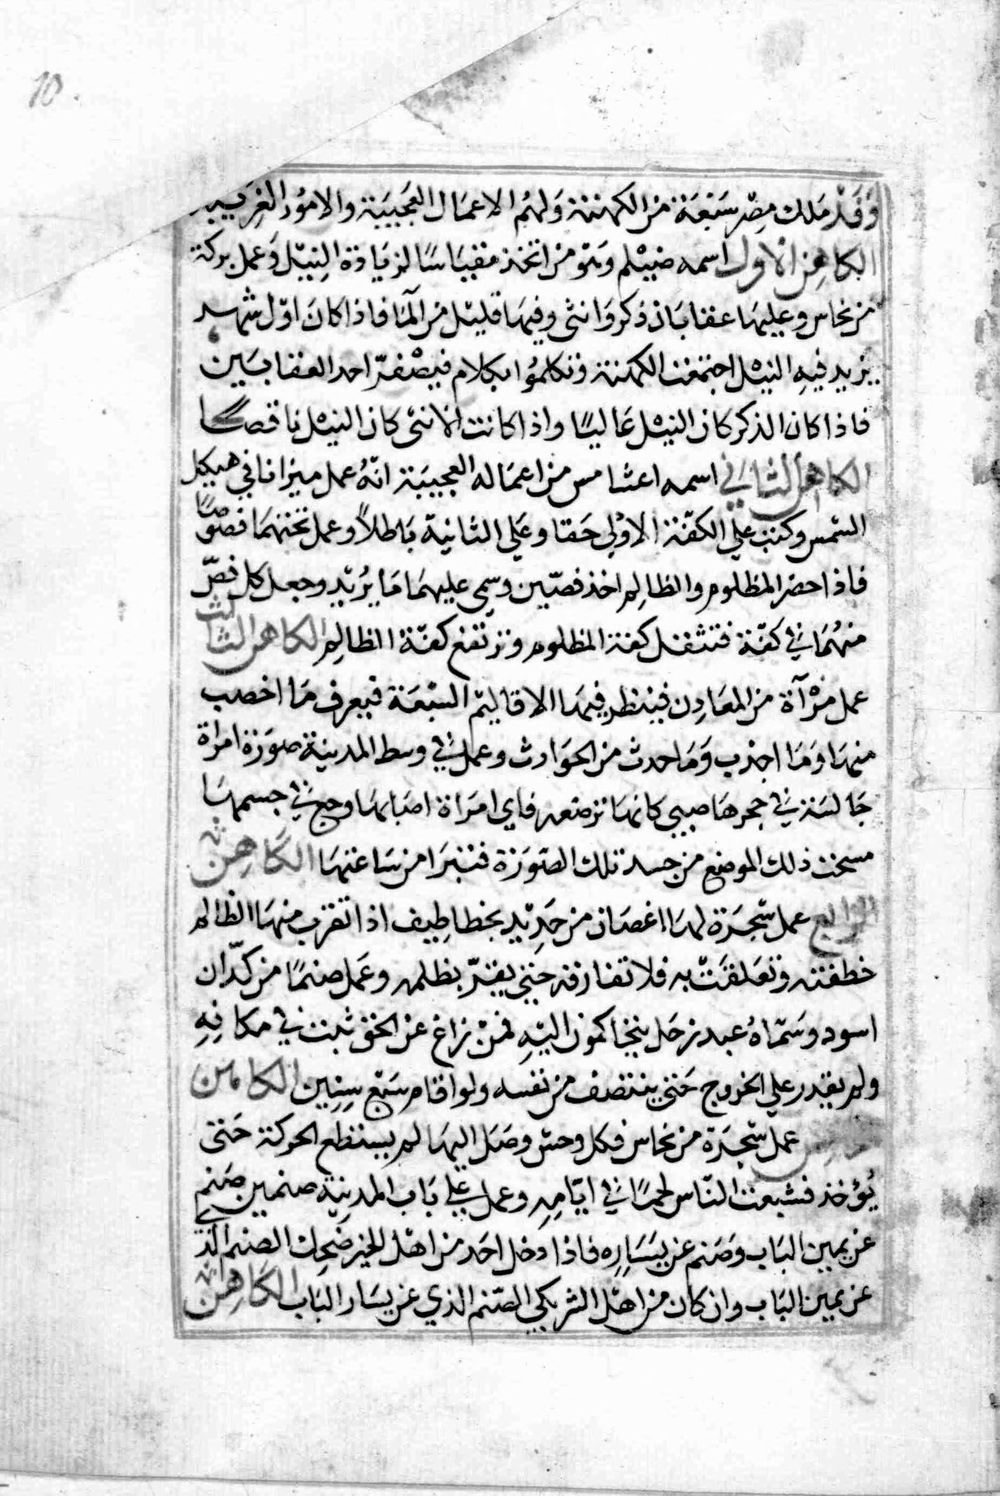 10.
وَقَدْ مَلك مِصْر سَبْعَة من الكهنة وَلهُم الاعمَال العَجَيبَة والامُور الغرَيبة
الكاهِن الاول اسمه صَيْلم وَهْو من اتخذ مقيَاسًا لزيَادة النِيْل وَعمل بركة
من نحاس وعليهَا عقابَان ذكر وَانثى وفيهَا قليْل من المَا فاذا كانَ اوّل شهر
يزيد فيهِ النيْل اجتمعت الكهنة وتكلمُوا بكلام فيصْفرّ احد العقابَين
فاذا كان الذكر كان النيْل عَاليًا واذا كانت الانثى كان النيْل ناقصًا
الكاهن الثاني اسمه اعشامس من اعمَاله العجيبَة انّهُ عمل ميزانا في هيكل
الشمس وكتب علي الكفّة الاولى حَقا وعَلي الثانيّة بَاطلاً وعمل تحتهمَا فصُوصًا
فاذا حضر المظلوم والظالِم اخذ فصّين وسمي عليهمَا مَا يُريْد وجعل كل فصّ
منهُمَا في كفّة فتثقل كفة المظلوم وترتفع كفّة الظالِم الكاهن الثالث
عمل مرْآة من المعَادِن فينظر فيهَا الاقاليْم السّبْعَة فيعرف مَا اخصب
منهَا وَمَا اجذب وَمَا حدث من الحَوَادث وعمل في وسط المدينَة صوَرة امراة
جَالسَة في حجرهَا صبي كانهَا ترضعه فاي امرَاة اصَابهَا وجع في جسمهَا
مسحت ذلك الموضِع من جسد تلك الصّورَة فتبرَا من سَاعتهَا الكَاهِن
الرابع عمل شجَرَة لهَا اغصَان من حَدِيْد بخطاطِيف اذا تقرب منهَا الظالم
خطفته وتعَلقَتْ به فلا تفارقه حتي يقرّ بظلمه وعَمل صنمًا من كدّان
اسود وسَمّاهُ عبد زحَل يتحاكمون اليْهِ فمنْ زاغ عن الحق ثبت في مكانِهِ
ولم يقدر علي الخروج حَتي ينتصف من نفسه ولو اقام سَبْع سِنِين الكاهن
عمل شجَرَة من نحاس فكل وحش وصَل اليهَا لم يستطع الحركة حَتى
يُؤخذ فشبعت النّاس لحمًا في ايّامِهِ وعمل علي بَاب المدينة صنمين صَنم
عن يمين البَاب وصَنم عن يسَارِه فاذا دخل احَد من اهْل الخير ضَحِك الصنم الذي
عن يمين البَاب وان كان من اهْل الشر بكي الصّنم الذي عن يسَار البَاب الكَاهِن